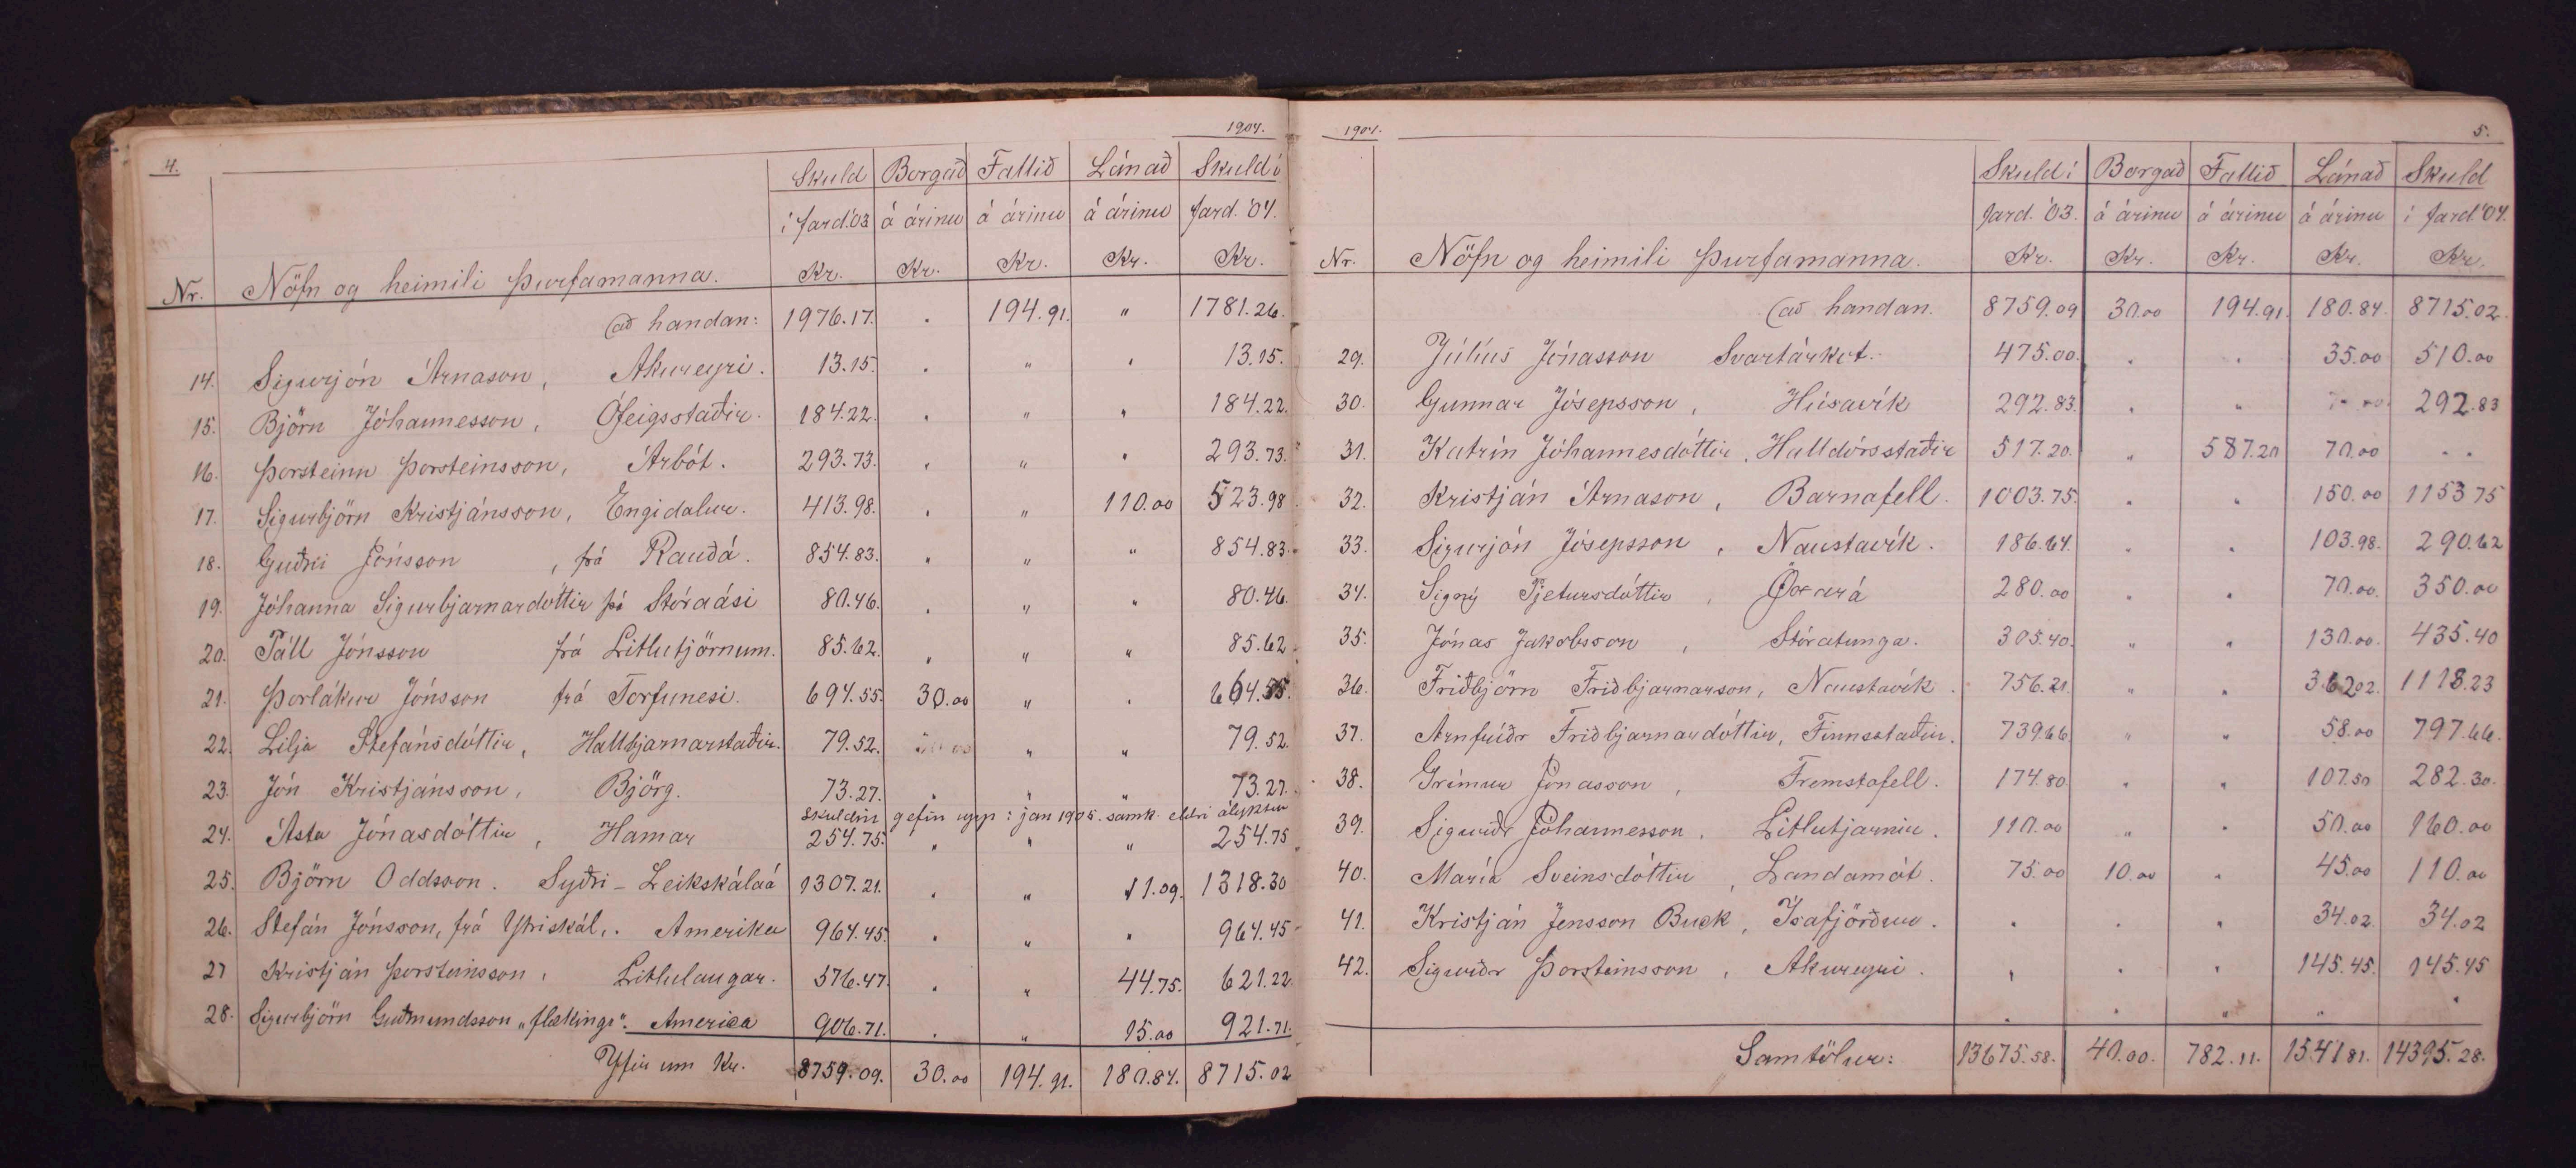 4. 1904.
Skuld Borgað Fallið Lánað Skuld í
í fard.'03 á árinu á árinu á árinu fard. '04.
Nr. Nöfn og heimili þurfamanna. Kr. Kr. Kr. Kr. Kr.
að handan: 1976.17. . 194.91. " 1781.26.
14. Sigurjón Árnason, Akureyri. 13.15. . " " 13.15.
15. Björn Jóhannesson, Ófeigsstaðir. 184.22. . " " 184.22.
16. Þorsteinn Þorsteinsson, Árbót. 293.73. . " " 293.73.
17. Sigurbjörn Kristjánsson, Engidalur. 413.98. . " 110.00 523.98
18. Guðni Jónsson, frá Rauðá. 854.83. " " " 854.83.
19. Jóhanna Sigurbjarnardóttir frá Stóraási 80.46. . " " 80.46.
20. Páll Jónsson frá Litlutjörnum. 85.62. " " " 85.62
21. Þorlákur Jónsson frá Torfunesi. 694.55. 30.00 " . 664.55.
22. Lilja Stefánsdóttir, Hallbjarnarstaðir. 79.52. " " 79.52.
23. Jón Kristjánsson, Björg. 73.27. " " " 73.27.
Skuldin gefin upp í jan 1905. samk. eldri ályktun
24. Ásta Jónasdóttir, Hamar 254.75. " " " 254.75
25. Björn Oddsson. Syðri-Leikskálaá 1307.21. . " 11.09. 1318.30
26. Stefán Jónsson, frá Ytriskál,. Amerika 964.45. . " " 964.45
27 Kristján Þorsteinsson, Litlulaugar. 576.47. . " 44.75. 621.22
28. Sigurbjörn Guðmundsson „flækingr". America 906.71. . " 15.00 921.71.
Yfir um Kr. 8759.09. 30.00 194.91. 180.84. 8715.02
1904. 5.
Skuld í Borgað Fallið Lánað Skuld
fard. '03. á árinu á árinu á árinu í fard '04.
Nr. Nöfn og heimili þurfamanna. Kr. Kr. Kr. Kr. Kr.
að handan. 8759.09 30.00 194.91. 180.84. 8715.02.
29. Júlíus Jónasson Svartárkot. 475.00. . . 35.00 510.00
30. Gunnar Jósepsson, Húsavík 292.83. . " 292.83
31. Katrín Jóhannesdóttir, Halldórsstaðir 517.20. " 587.20 70.00 . .
32. Kristján Árnason, Barnafell. 1003.75. " " 150.00 1153 75
33. Sigurjón Jósepsson, Naustavík. 186.64. . . 103.98. 290.62
34. Signý Pjetursdóttir, Öxará 280.00 " " 70.00. 350.00
35. Jónas Jakobsson, Stóratunga. 305.40. " " 130.00. 435.40
36. Friðbjörn Friðbjarnarson, Naustavík. 756.21. " " 362 02. 1118.23
37. Arnfríðr Friðbjarnardóttir, Finnsstaðir. 739.66 " " 58.00 797.66.
38. Grímur Jónasson, Fremstafell. 174.80. " " 107.50 282.30.
39. Sigurðr Jóhannesson, Litlutjarnir. 110.00 " " 50.00 160.00
40. María Sveinsdóttir, Landamót. 75.00 10.00 " 45.00 110.00
41. Kristján Jensson Buck, Ísafjörður. . . " 34.02. 34.02
42. Sigurðr Þorsteinsson, Akureyri. " . " 145.45. 145.45
. " " " "
Samtölur: 13675.58. 40.00. 782.11. 1541 81. 14395.28.